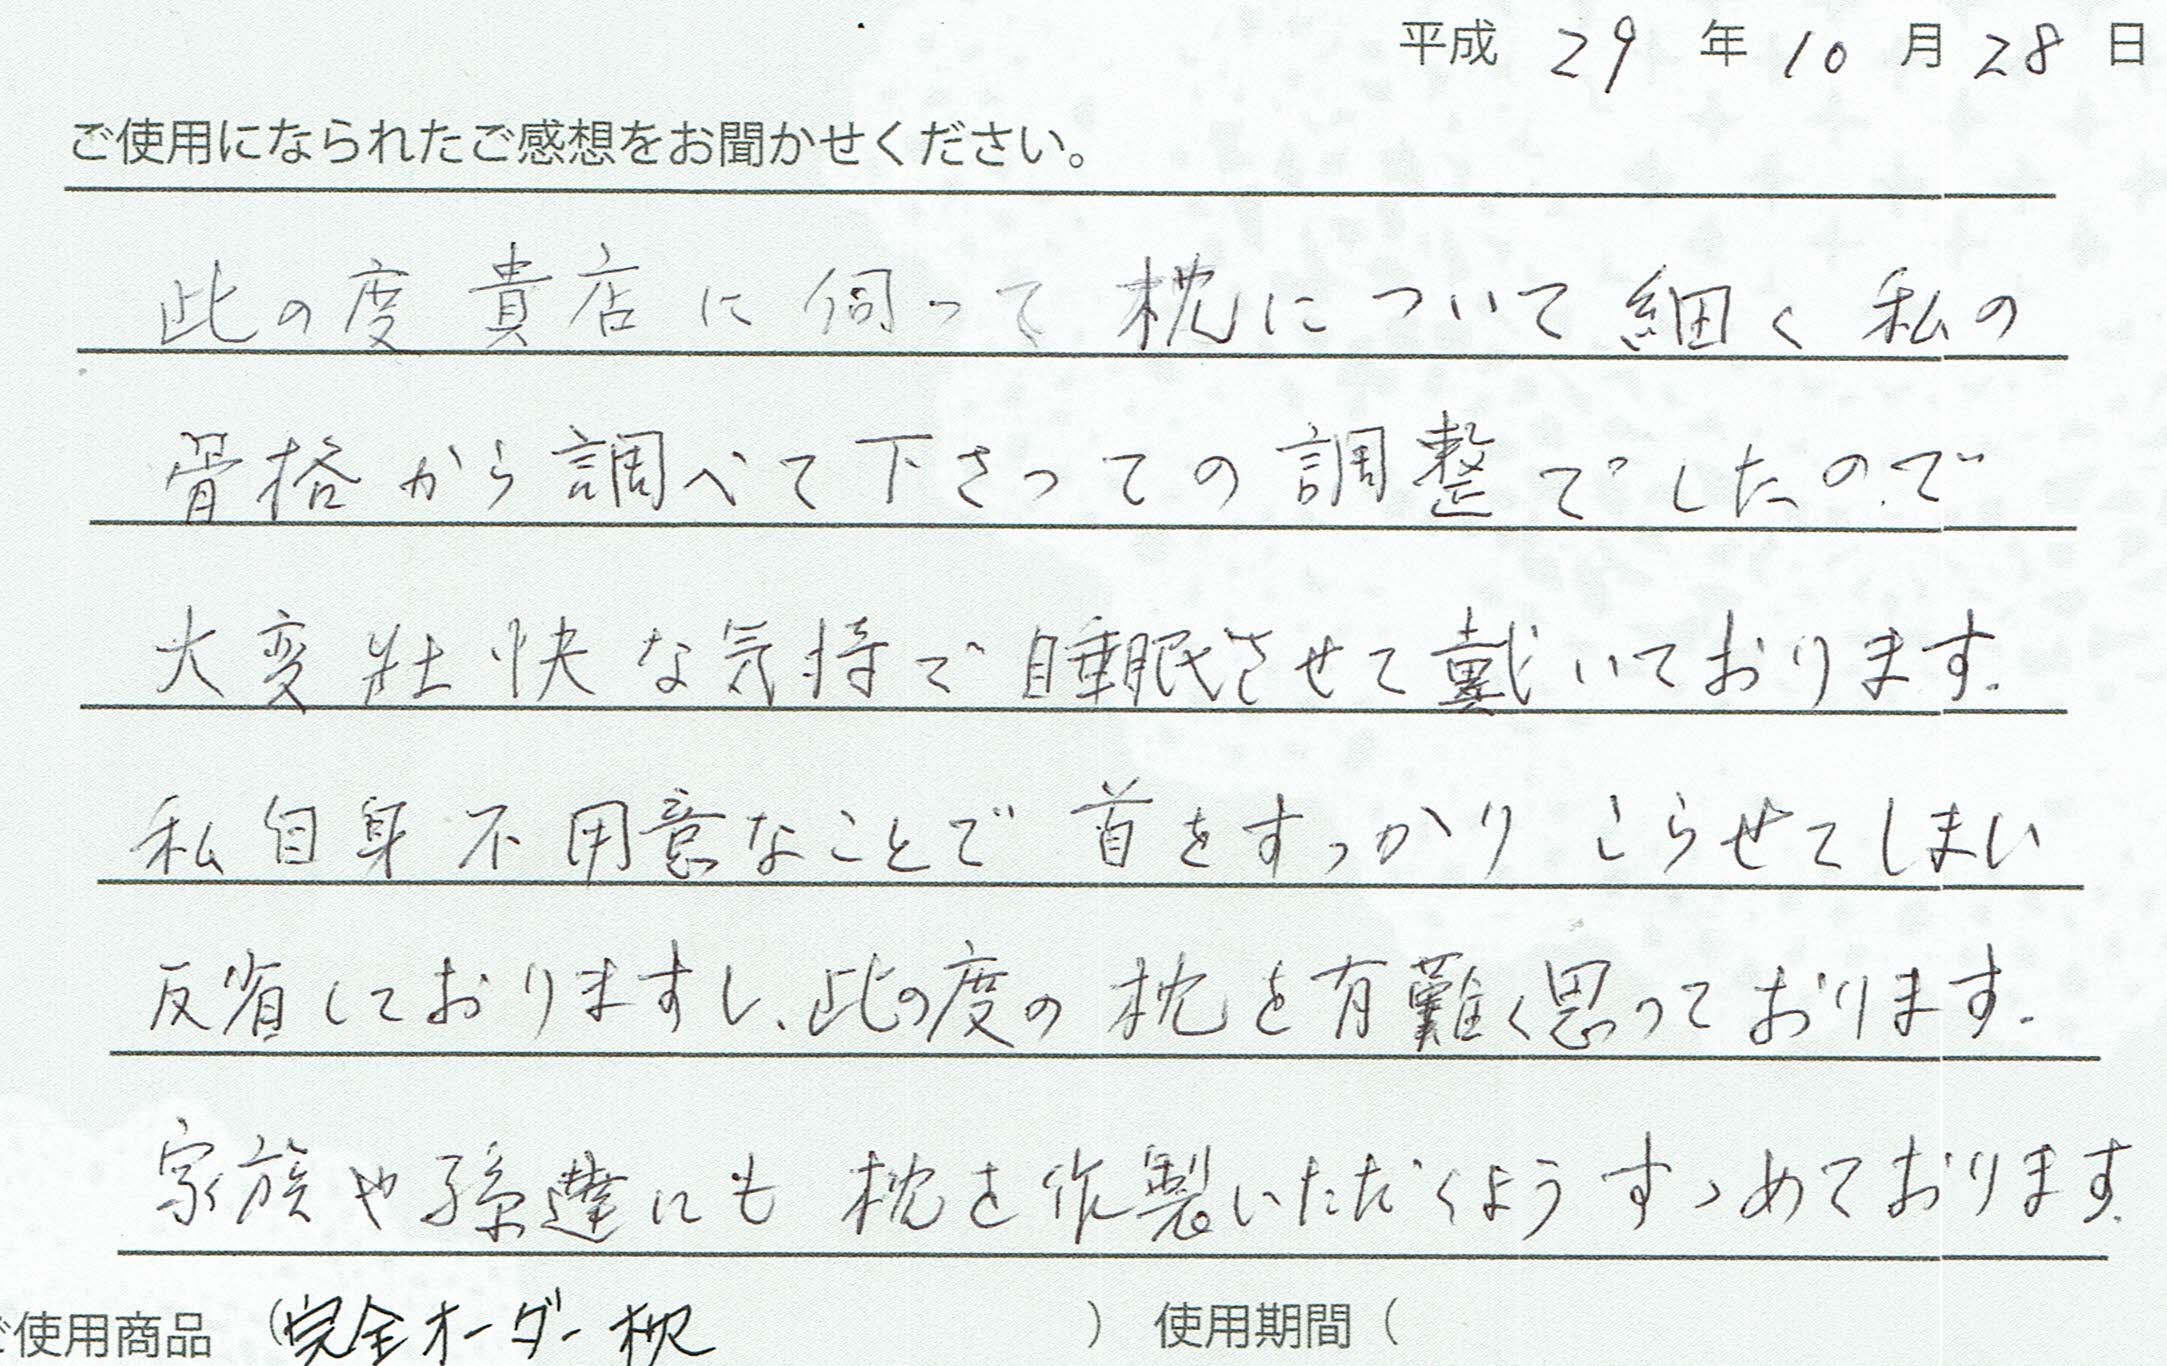 平成 29 年 10 月 28 日
ご使用になられたご感想をお聞かせください。
此の度貴店に伺って枕について細く私の
骨格から調べて下さっての調整でしたので
大変壮快な気持で睡眠させて戴いております.
私自身不用意なことで首をすっかりこらせてしまい
反省しておりますし、此の度の枕を有難く思っております.
家族や孫達にも枕を作製いただくようすゝめております.
ご使用商品 (完全オーダー枕 ) 使用期間 (